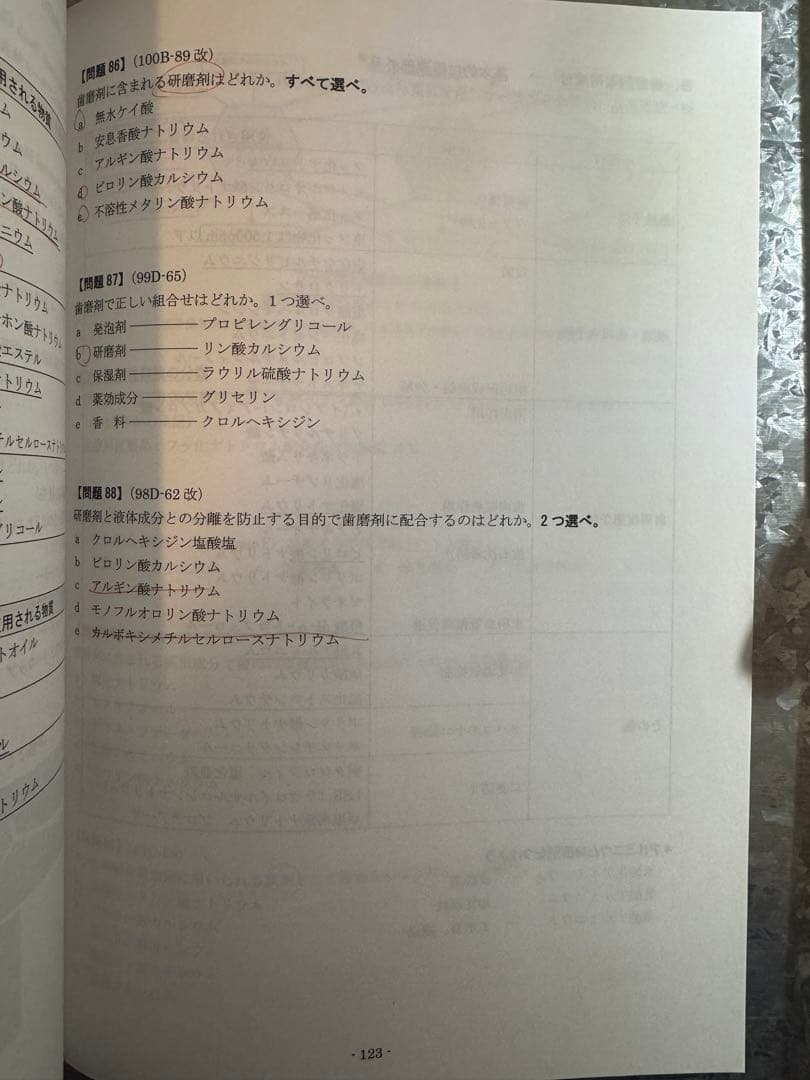 用される物質
ウム
ルシウム
ン酸ナトリウム
ニウム
ナトリウム
ホン酸ナトリウム
酸エステル
トリウム
チルセルロースナトリウム
グリコール
用される物質
トオイル
トリウム
【問題 86】(100B-89 改)
歯磨剤に含まれる研磨剤はどれか。すべて選べ。
a 無水ケイ酸
b 安息香酸ナトリウム
c アルギン酸ナトリウム
d ピロリン酸カルシウム
e 不溶性メタリン酸ナトリウム
【問題 87】(99D-65)
歯磨剤で正しい組合せはどれか。1つ選べ。
a 発泡剤 ――― プロピレングリコール
b 研磨剤 ――― リン酸カルシウム
c 保湿剤 ――― ラウリル硫酸ナトリウム
d 薬効成分 ――― グリセリン
e 香 料 ――― クロルヘキシジン
【問題 88】(98D-62 改)
研磨剤と液体成分との分離を防止する目的で歯磨剤に配合するのはどれか。2つ選べ。
a クロルヘキシジン塩酸塩
b ピロリン酸カルシウム
c アルギン酸ナトリウム
d モノフルオロリン酸ナトリウム
e カルボキシメチルセルロースナトリウム
- 123 -